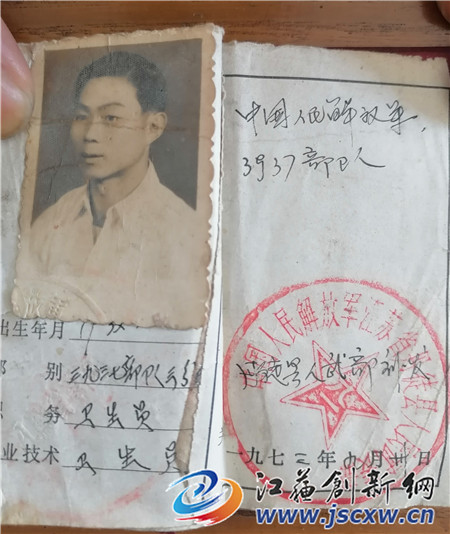 出生年月
别 三九三七部队
务 卫生员
业技术 卫生员
中国人民解放军
3937部队
人武部
国人民解放军江苏省
一九七三年九月卅日
江苏创新网
www.jscxw.cn